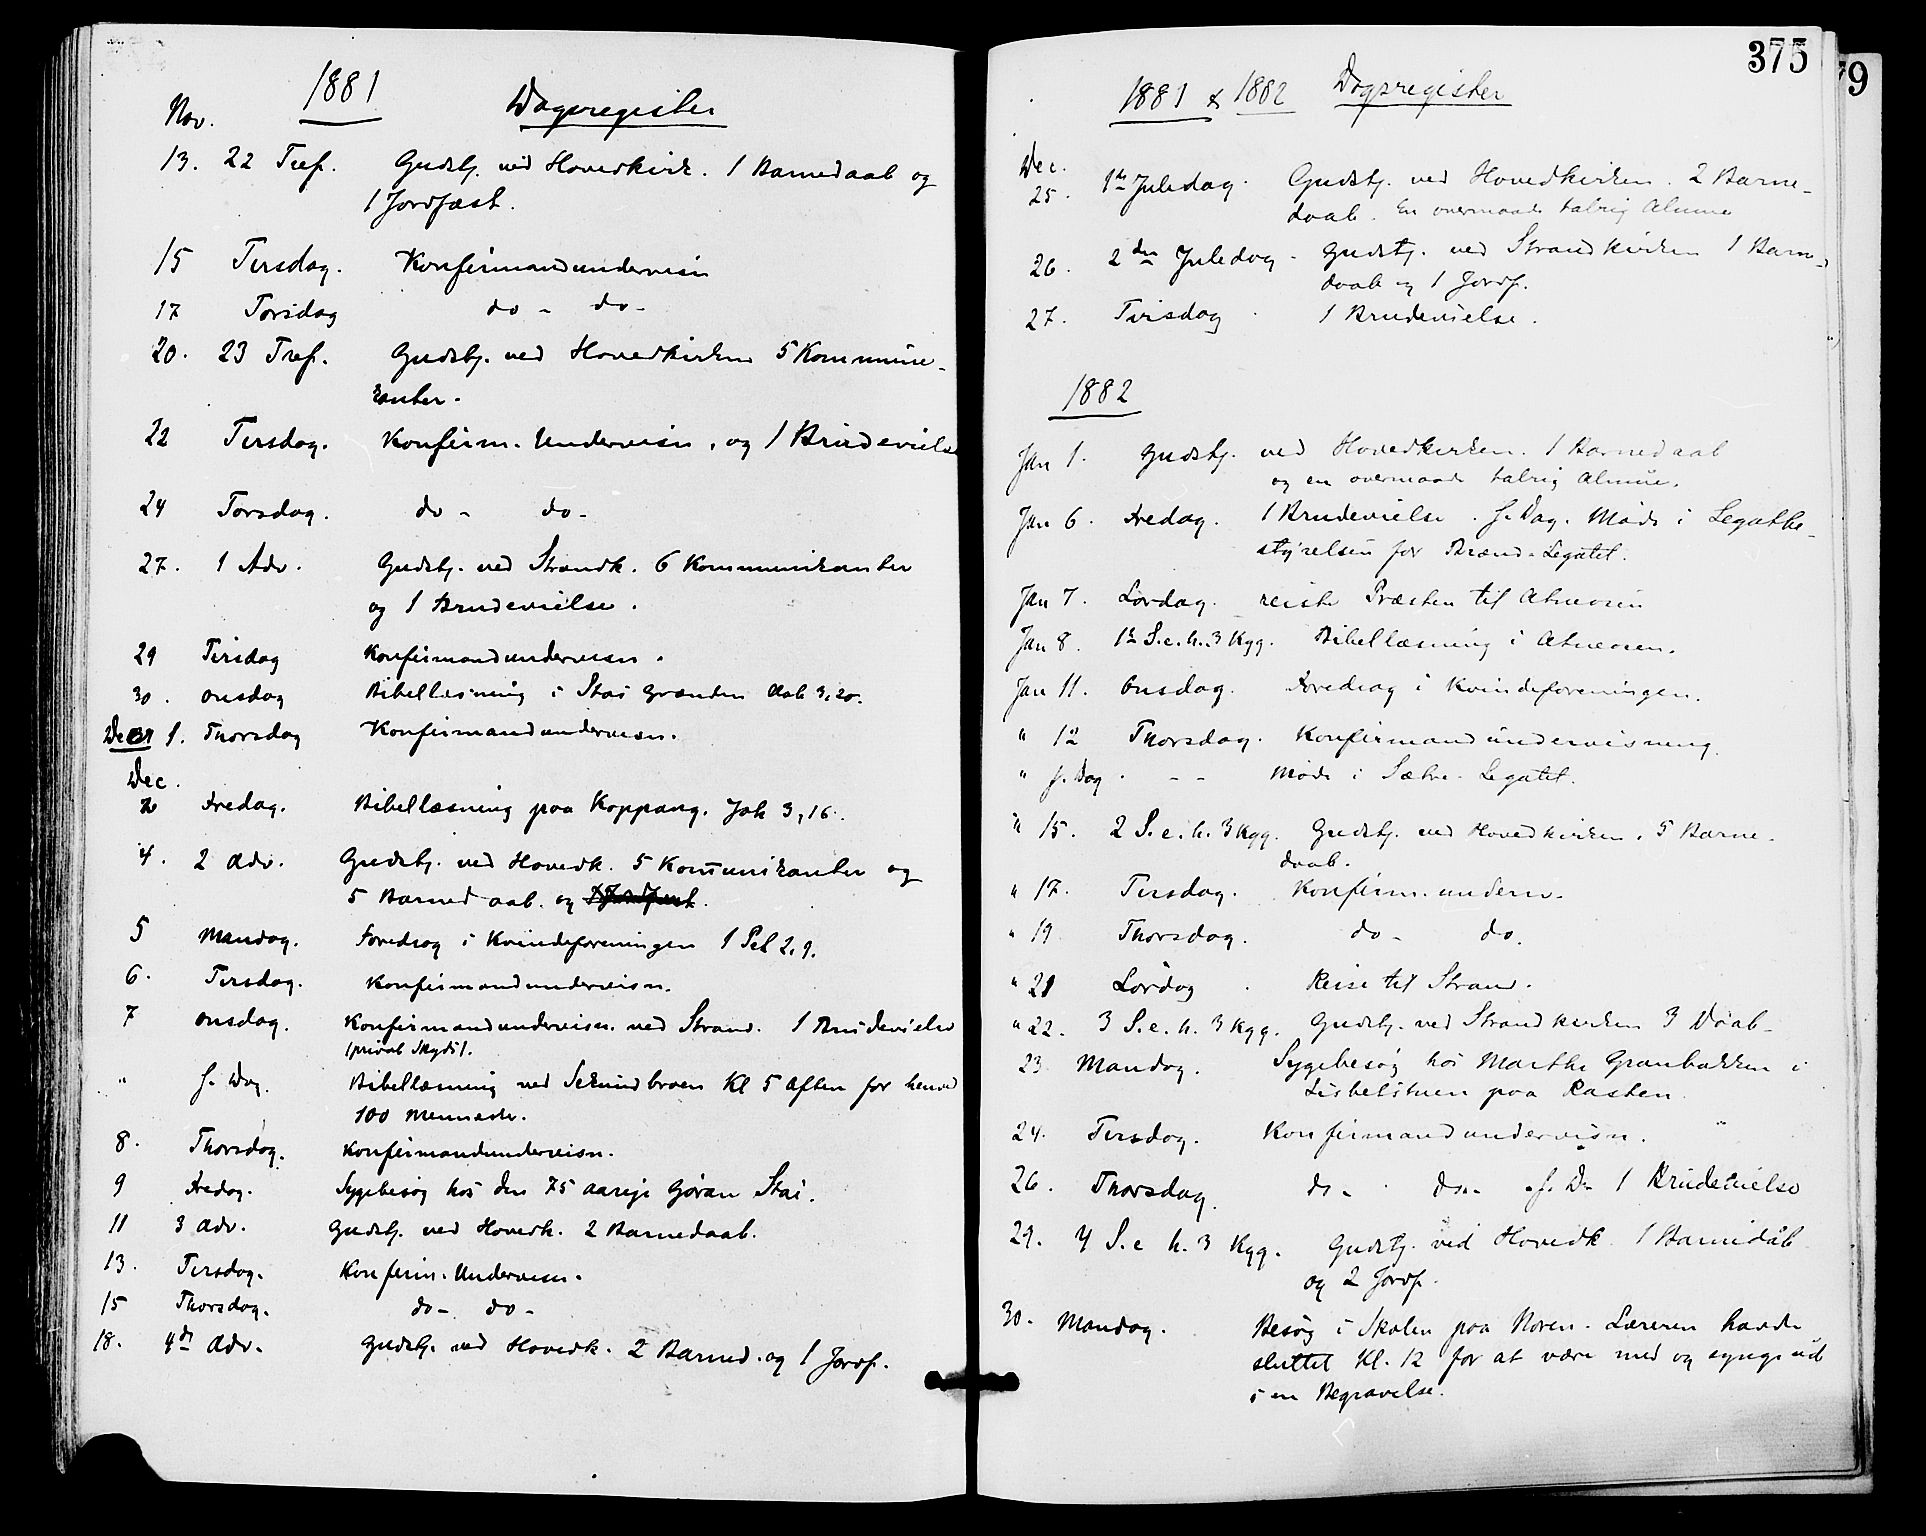 1881 Dagsregister
Nov.
13. 22 Tref. Gudstj. ved Hovedkirk. 1 Barnedaab og
1 Jordfæst.
15 Tirsdag. Konfirmandundervisn
17 Torsdag do - do -
20. 23 Tref. Gudstj. ved Hovedkirken 5 Kommuni-
kanter.
22 Tirsdag. Konfirm. Undervisn. og 1 Brudevielse
24 Torsdag. do - do -
27. 1 Adv. Gudstj. ved Strandk. 6 Kommunikanter
og 1 Brudevielse.
29 Tirsdag Konfirmandundervisn.
30. Onsdag Bibellæsning i Stai Grænden Aab 3, 20.
Dec 1. Thorsdag Konfirmandundervisn.
Dec.
2 Fredag. Bibellæsning paa Koppang. Joh 3, 16.
4. 2 Adv. Gudstj. ved Hovedk. 5 Komunikanter og
5 Barned aab. og
5 Mandag. Foredrag i Kvindeforeningen 1 Pet 2, 9.
6. Tirsdag. Konfirmandundervisn.
7 Onsdag. Konfirmandundervisn. ved Strand. 1 Brudevielse
(privat Skyds).
" s. Dag. Bibellæsning ved Sekundbroen Kl 5 Aften for henved
100 Mennesker.
8. Thorsdag. Konfirmandundervisn.
9 Fredag. Sygebesøg hos den 75 aarige Gøran Stai.
11 3 Adv. Gudstj. ved Hovedk. 2 Barnedaab.
13. Tirsdag. Konfirm. Undervisn.
15 Thorsdag. do - do -
18. 4de Adv. Gudstj. ved Hovedk. 2 Barned. og 1 Jordf.
375
79
1881 & 1882 Dagsregister
Dec.
25. 1ste Juledag. Gudstj. ved Hovedkirken. 2 Barne-
daab. En overmaade talrig Almue
26. 2den Juledag - Gudstj. ved Strandkirken 1 Barne-
daab og 1 Jordf.
27. Tirsdag. 1 Brudevielse.
1882
Jan 1. Gudstj. ved Hovedkirken. 1 Barnedaab
og en overmaade talrig Almue.
Jan 6. Fredag. 1 Brudevielse. s. Dag. Møde i Legatbe-
styrelsen for Brænd-Legatet.
Jan 7. Lørdag. reiste Præsten til Atneosen
Jan 8. 1ste S. e. h. 3 Kgg. Bibellæsning i Atneosen.
Jan 11. Onsdag. Foredrag i Kvindeforeningen.
" 12 Thorsdag. Konfirmandundervisning
" s. Dag. - - Møde i Sætre-Legatet.
" 15. 2 S. e. h. 3 Kgg. Gudstj. ved Hovedkirken. 5 Barne-
daab.
" 17. Tirsdag. Konfirm. underv.
" 19 Thorsdag. do - do.
" 21 Lørdag. Reise til Strand.
" 22. 3 S. e. h. 3 Kgg. Gudstj. ved Strandkirken 3 Daab-
23. Mandag. Sygebesøg hos Marthe Granbakken i
Lisbetstuen paa Rasten.
24. Tirsdag. Konfirmandundervisn. "
26. Thorsdag. do - do. - s. D. 1 Brudevielse
29. 4 S. e h. 3 Kgg. Gudstj. ved Hovedk. 1 Barnedåb
og 2 Jordf.
30. Mandag. Besøg i Skolen paa Noren. Læreren havde
sluttet Kl. 12 for at være med og synge ud
i en Begravelse.